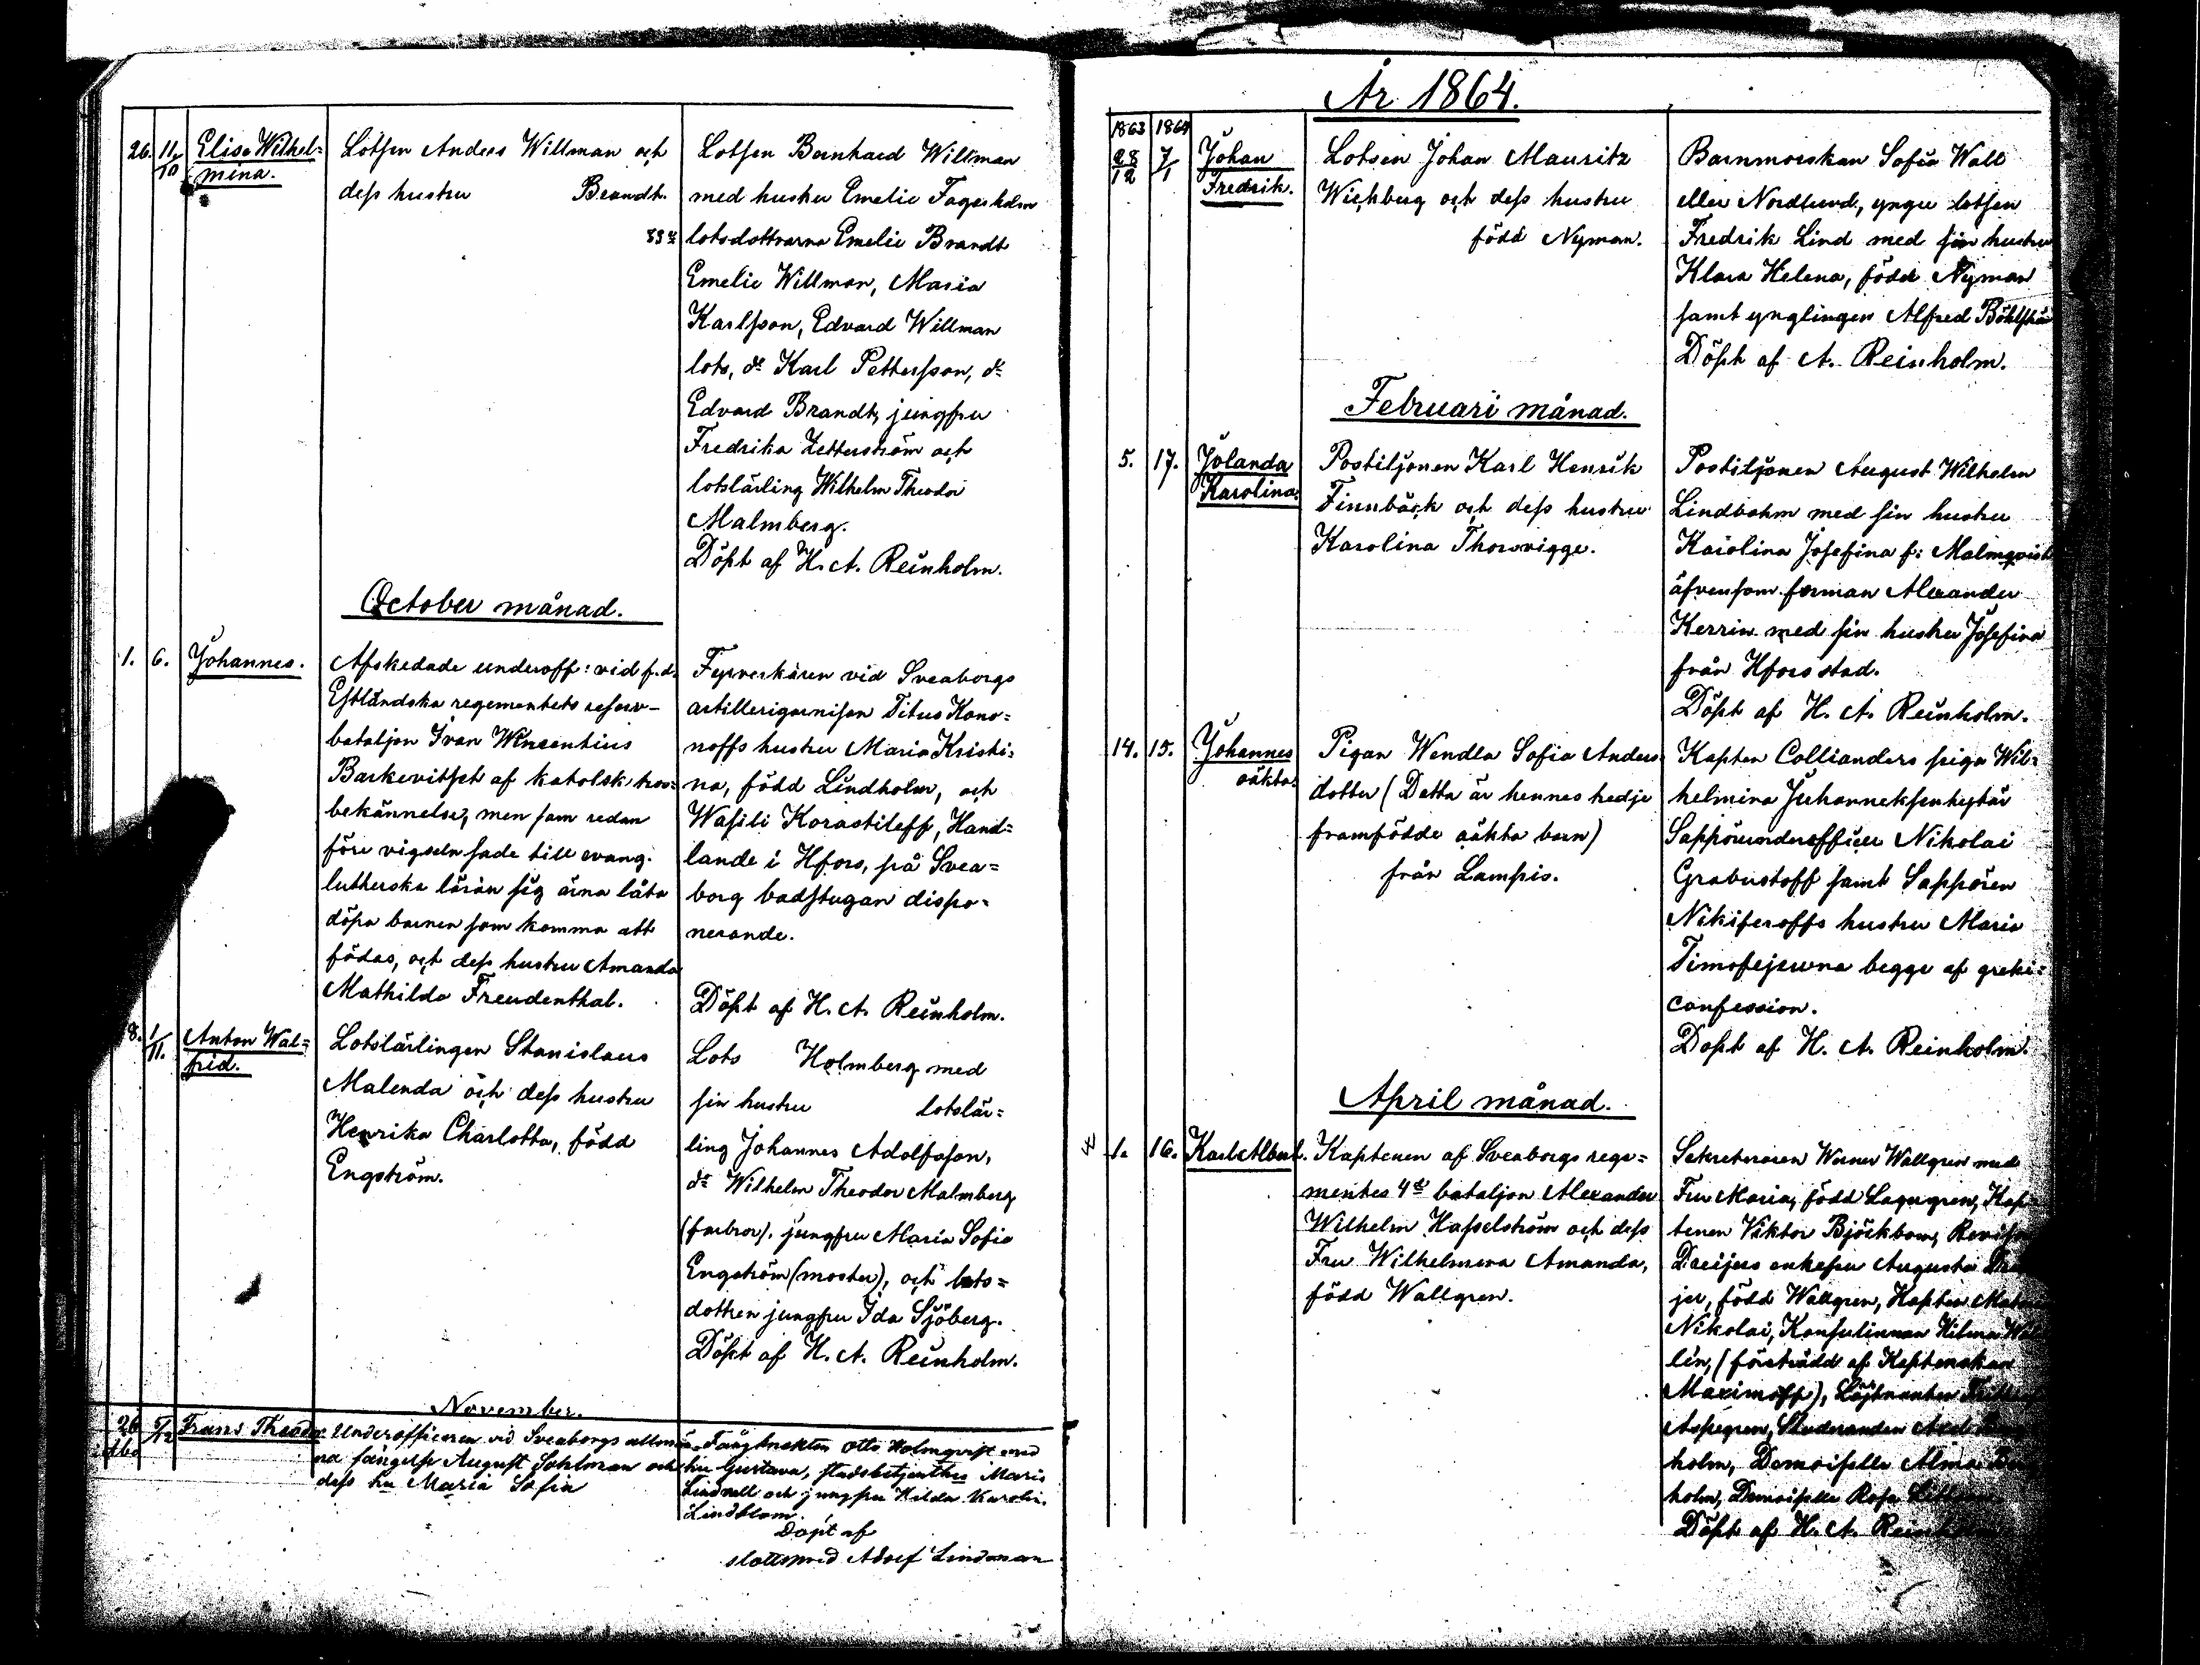 26. 11/10 Elisa Wilhel=
mina.
Lotsen Anders Willman och
dess hustru Brandt.
33 år
Lotsen Bernhard Willman
med hustru Emelie Fagerholm
lotsdottrarna Emelie Brandt
Emelie Willman, Maria
Karlsson, Edvard Willman
lots, do Karl Pettersson, do
Edvard Brandt, jungfru
Fredrika Zetterström och
lotslärling Wilhelm Theodor
Malmberg.
Döpt af H. A. Reinholm.
October månad.
1. 6. Johannes.
Afskedade underoff: vid f.d.
Estländska regementets reserv-
bataljon Ivan Wincentius
Barkevitsch af katolsk tros=
bekännelse, men som redan
före vigseln sade till evang.
lutherska läran sig ärna låta
döpa barnen som komma att
födas, och dess hustru Amanda
Mathilda Freudenthal.
Fyrverkären vid Sveaborgs
artillerigarnison Titus Kono=
noffs hustru Maria Kristi=
na, född Lindholm, och
Wasili Korastileff, Hand=
lande i Hfors, på Svea=
borg badstugan dispo=
nerande.
Döpt af H. A. Reinholm.
8. 1/11. Anton Wal=
frid.
Lotslärlingen Stanislaus
Malenda och dess hustru
Henrika Charlotta, född
Engström.
Lots Holmberg med
sin hustru lotslär=
ling Johannes Adolfsson,
do Wilhelm Theodor Malmberg
(farbror). jungfru Maria Sofia
Engström (moster), och lots=
dottren jungfru Ida Sjöberg.
Döpt af H. A. Reinholm.
November.
26 Frans Theodor
Underofficeren vid Sveaborgs allmän=
na fängelse August Sohlman och
dess hu Maria Sofia
Fångknekten Otto Holmqvist med
hu Gustava, stadsbetjentes Maria
Lindvall och jungfru Hilda Karoli.
Lindblom.
Döpt af
slottspred Adolf Lindman
År 1864.
1863 1864
28/12 7/1 Johan
Fredrik.
Lotsen Johan Mauritz
Wickberg och dess hustru
född Nyman.
Barnmorskan Sofia Wall
eller Nordlund, yngre lotsen
Fredrik Lind med sin hustru
Klara Helena, född Nyman
samt ynglingen Alfred
Döpt af A. Reinholm.
Februari månad.
5. 17. Jolanda
Karolina.
Postiljonen Karl Henrik
Finnbäck och dess hustru
Karolina Thorsvigge.
Postiljonen August Wilhelm
Lindbohm med sin hustru
Karolina Josefina f: Malmqvist
äfvensom forman Alexander
Kerrin med sin hustru Josefina
från Hfors stad.
Döpt af H. A. Reinholm.
14. 15. Johannes
oäkta.
Pigan Wendla Sofia Anders
dotter (Detta är hennes tredje
framfödde oäkta barn)
från Lampis.
Kapten Collianders piga Wil=
helmina Juhanneksentytär
Sappörunderofficer Nikolai
Grabustoff samt Sappören
Nikiferoffs hustru Maria
Timofejewna begge af greki=
confession.
Döpt af H. A. Reinholm.
April månad.
1. 16. Karl Albert.
Kaptenen af Sveaborgs rege=
mentes 4de bataljon Alexander
Wilhelm Hasselström och dess
Fru Wilhelmina Amanda,
född Wallgren.
Sekreteraren Werner Wallgren med
Fru Maria, född Lagergren, Kap=
tenen Viktor Björkbom,
Dreijers enkefru Augusta
jer, född Wallgren, Kapten
Nikolai, Konsulinnan Hilma
lén, (företrädd af Kaptenskan
Maximoff), Löjtnanten
Aspegren, Studeranden Axel
holm, Demoiselle Alma
holm, Demoiselle Rosa
Döpt af H. A. Reinholm